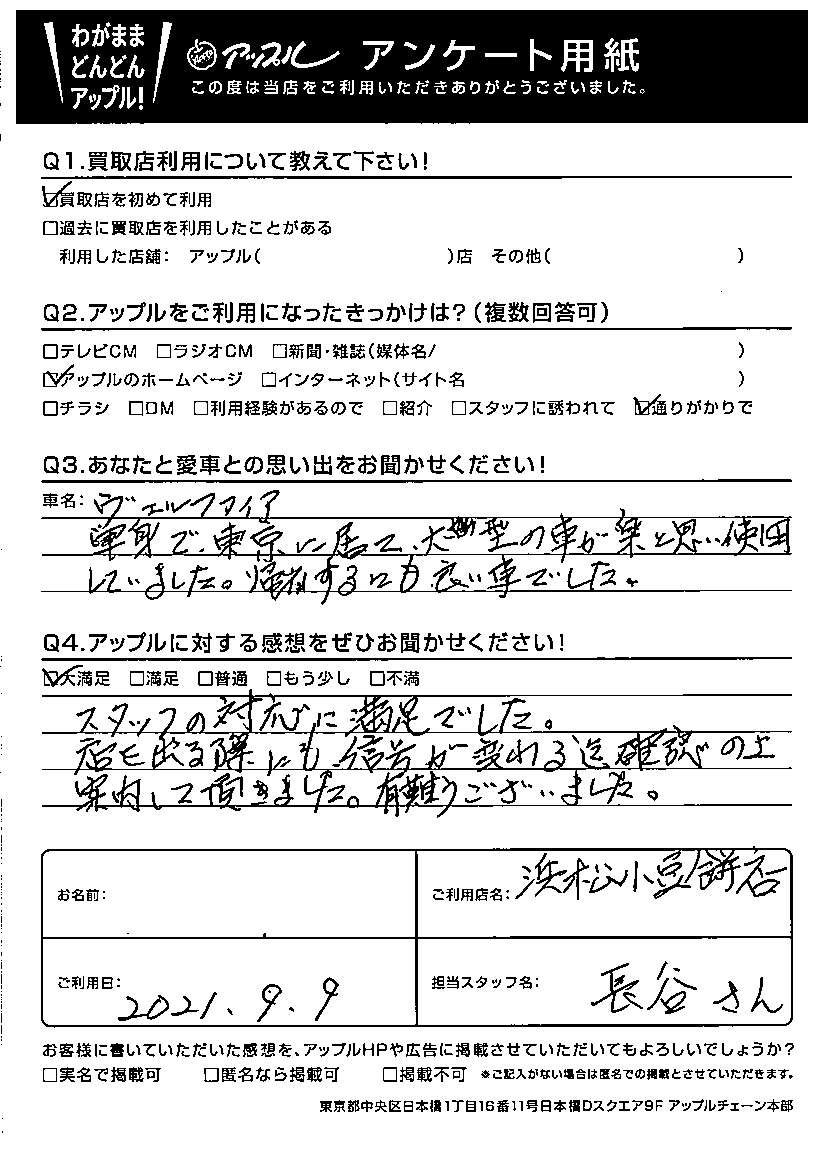 わがまま
どんどん
アップル!
アップル アンケート用紙
この度は当店をご利用いただきありがとうございました。
Q1.買取店利用について教えて下さい!
☑買取店を初めて利用
□過去に買取店を利用したことがある
利用した店舗: アップル( )店 その他( )
Q2.アップルをご利用になったきっかけは?(複数回答可)
□テレビCM □ラジオCM □新聞・雑誌(媒体名/ )
☑アップルのホームページ □インターネット(サイト名 )
□チラシ □DM □利用経験があるので □紹介 □スタッフに誘われて ☑通りがかりで
Q3.あなたと愛車との思い出をお聞かせください!
車名: ヴェルファイア
単身で、東京に居て、大型の車が楽と思い使用
していました。するにも良い車でした。
Q4.アップルに対する感想をぜひお聞かせください!
☑大満足 □満足 □普通 □もう少し □不満
スタッフの対応に満足でした。
店を出る際にも、信号が変わる迄確認の上
案内して頂きました。有難うございました。
お名前:
ご利用店名: 浜松小豆餅店
ご利用日: 2021.9.9
担当スタッフ名: 長谷さん
お客様に書いていただいた感想を、アップルHPや広告に掲載させていただいてもよろしいでしょうか?
□実名で掲載可 □匿名なら掲載可 □掲載不可 ※ご記入がない場合は匿名での掲載とさせていただきます。
東京都中央区日本橋1丁目16番11号日本橋Dスクエア9F アップルチェーン本部